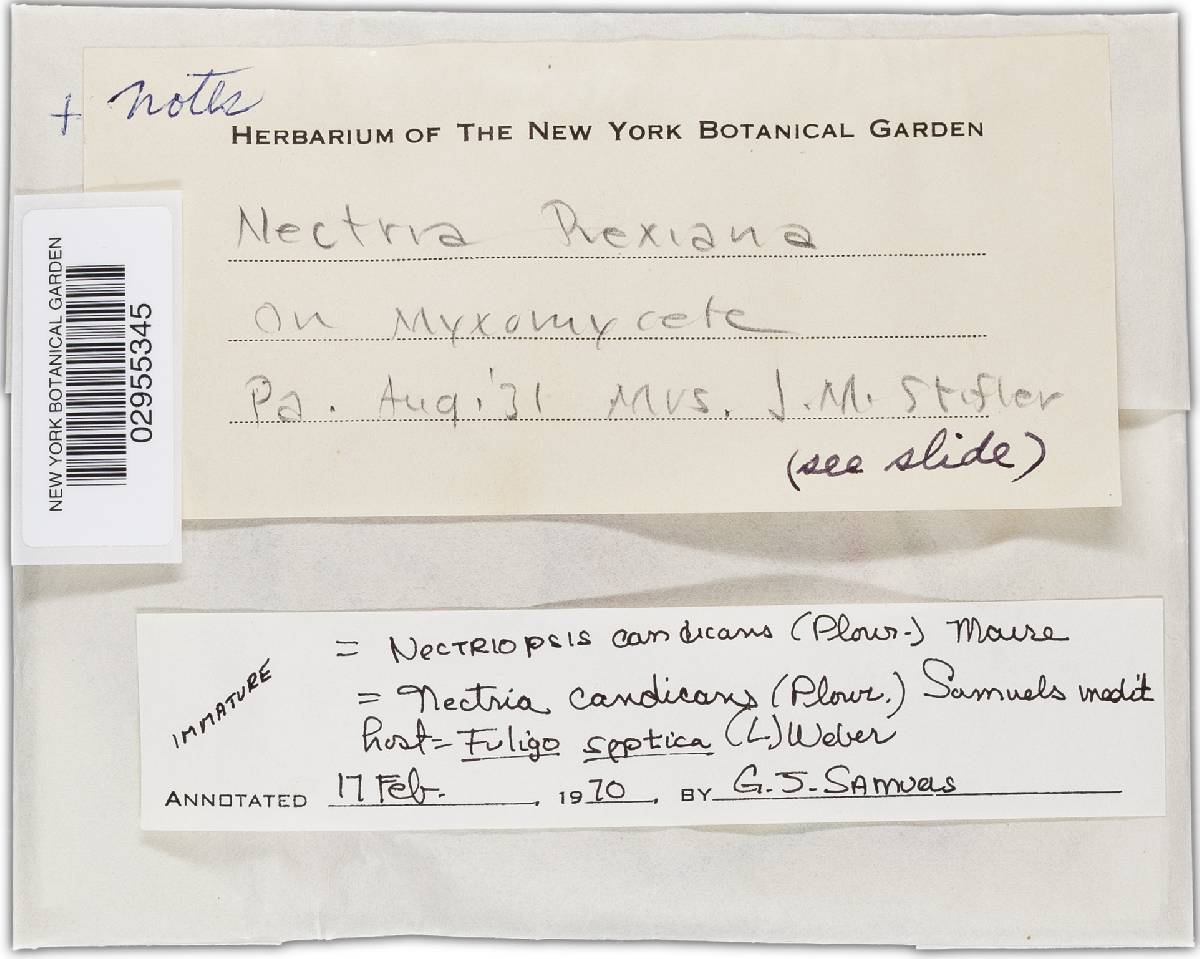 + notes
HERBARIUM OF THE NEW YORK BOTANICAL GARDEN
Nectria Rexiana
on Myxomycete
Pa. Aug. '31 Mrs. J. M. Stifler
(see slide)
NEW YORK BOTANICAL GARDEN
02955345
IMMATURE
= NECTRIOPSIS candicans (Plowr.) Maire
= Nectria candicans (Plowr.) Samuels inedit
host = Fuligo septica (L.) Weber
ANNOTATED 17 Feb. , 1970 , BY G. J. SAMUELS